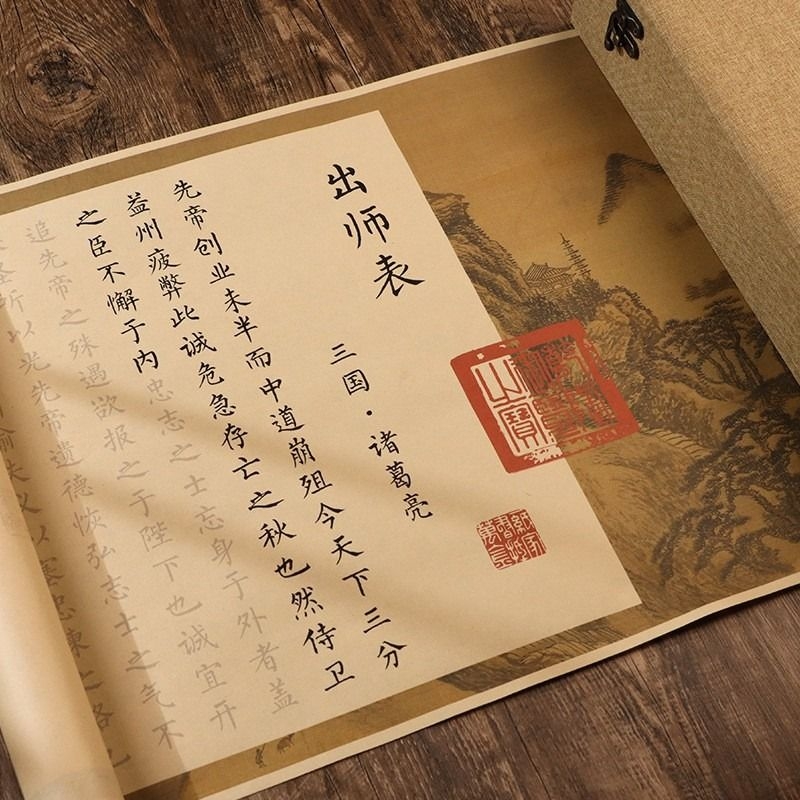 出师表
三国·诸葛亮
先帝创业未半而中道崩殂今天下三分
益州疲弊此诚危急存亡之秋也然侍卫
之臣不懈于内忠志之士忘身于外者盖
追先帝之殊遇欲报之于陛下也诚宜开
圣听以光先帝遗德恢弘志士之气不
喻失义以塞忠谏之路也
山寶